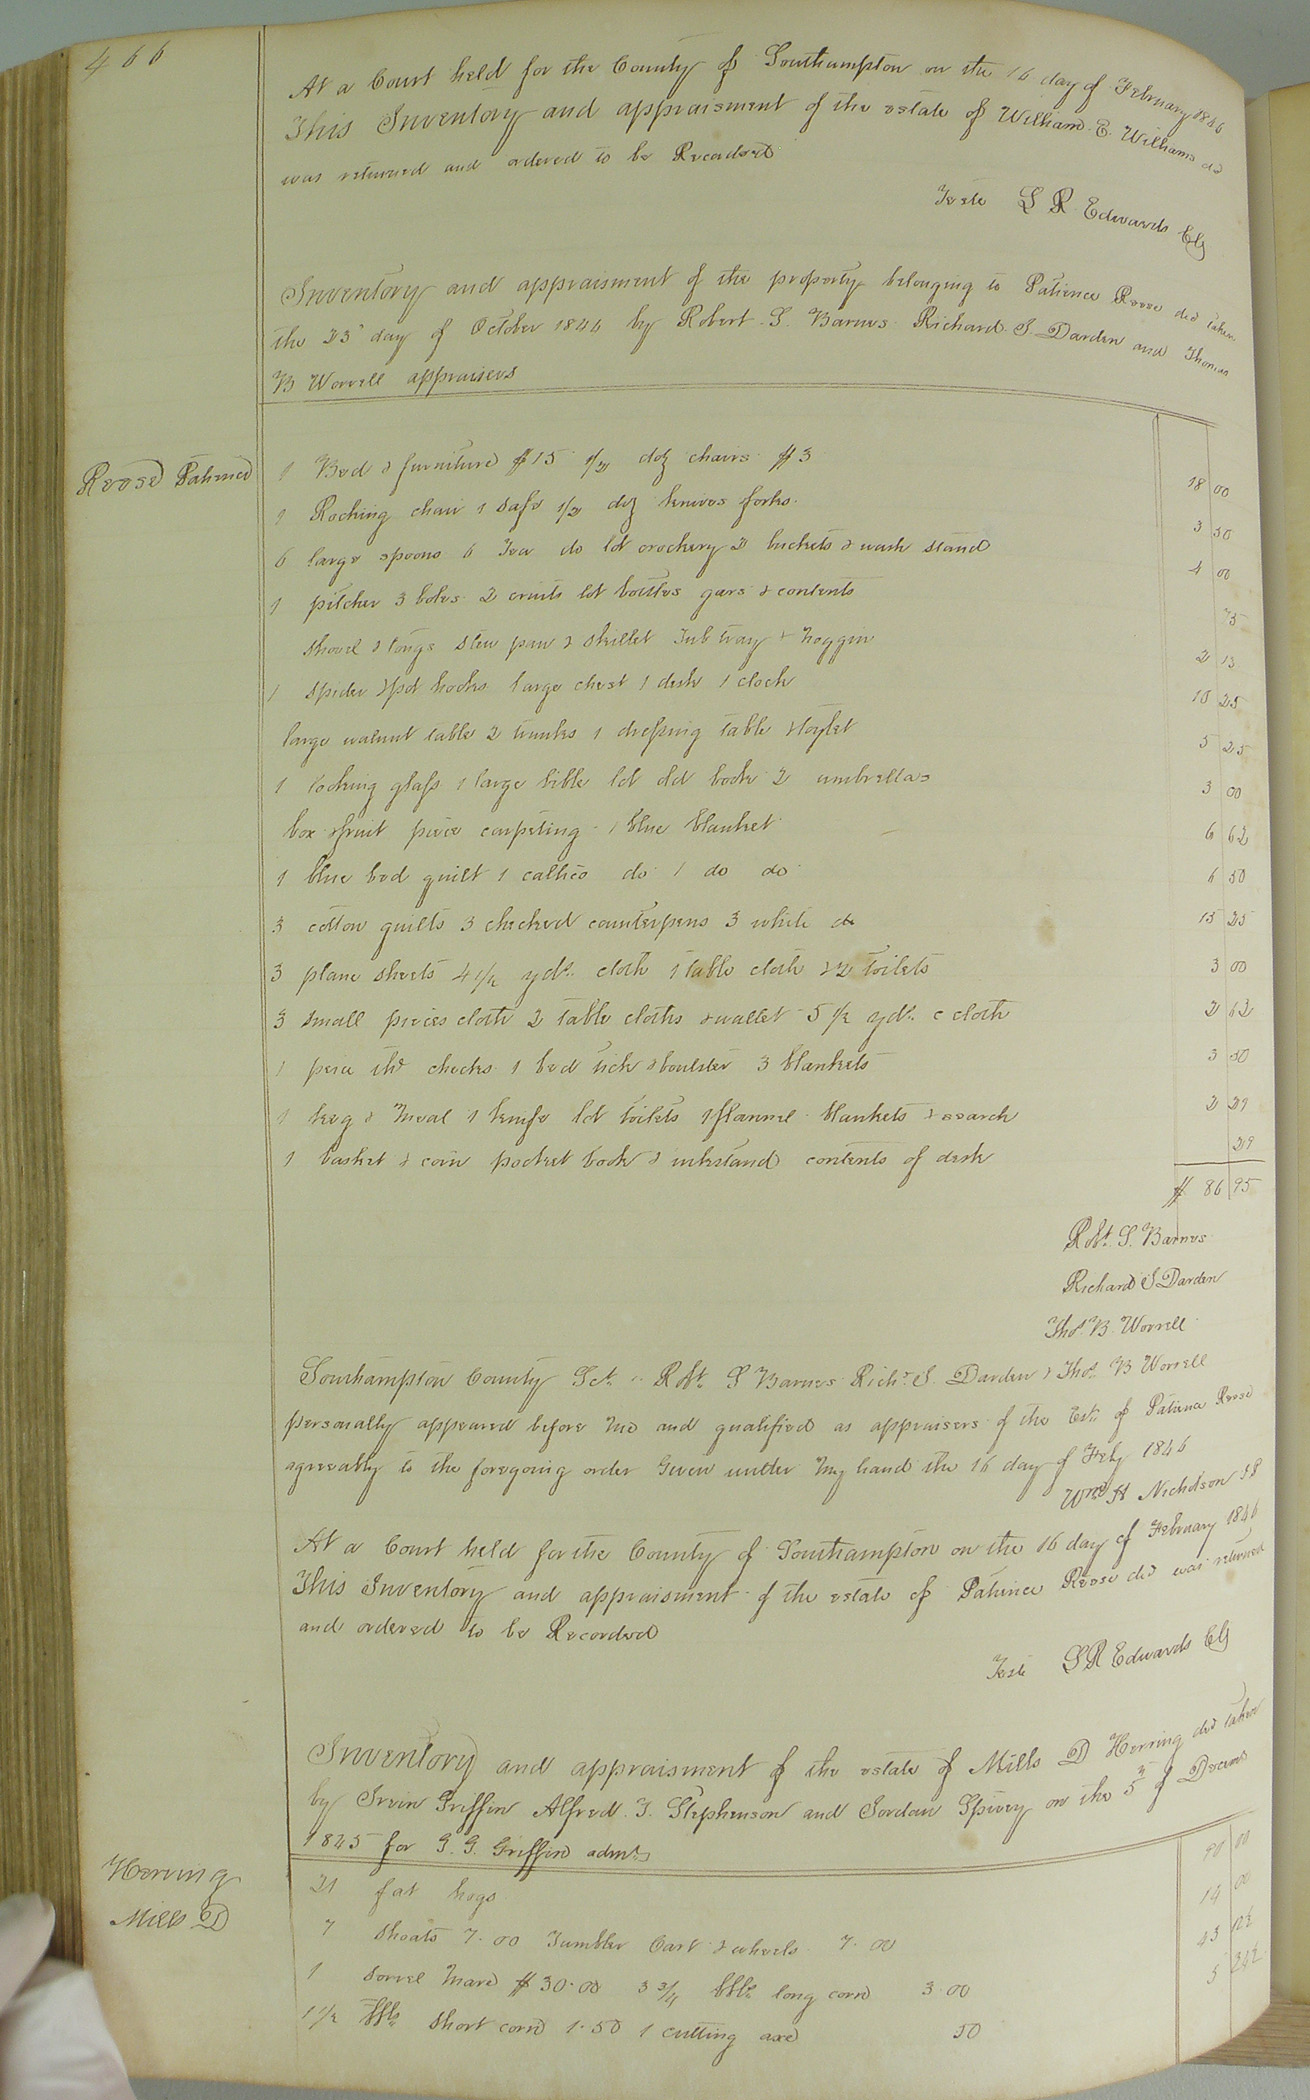 466
At a Court held for the County of Southampton on the 16 day of February 1846
This Inventory and appraisment of the estate of William E. Williams
was returned and ordered to be Recorded
Teste L R Edwards Clk
Inventory and appraisment of the property belonging to Patience Reese decd taken
the 23d day of October 1846 by Robert S. Barnes Richard S. Darden and Thomas
B Worrell appraisers
Reese Patience
1 Bed & furniture $15 1/2 doz chairs $3 18 00
1 Rocking chair 1 safe 1/2 doz knives forks 3 50
6 large spoons 6 Tea do lot crockery 2 buckets & wash stand 4 00
1 pitcher 3 boles 2 cruits lot bottles gars & contents 75
shovel & tongs stew pan & skillet Tub tray & Noggin 2 13
1 spider & pot hooks large chest 1 desk 1 clock 10 25
large walnut table 2 trunks 1 dressing table & toylet 5 25
1 looking glass 1 large bible lot old book 2 umbrellas 3 00
box & fruit peice carpeting 1 blue blanket 6 62
1 blue bed quilt 1 callico do 1 do do 6 50
3 cotton quilts 3 checked counterpens 3 white do 15 25
3 plane sheets 4 1/2 yds. cloth 1 table cloth & 2 toilets 3 00
3 small pieces cloth 2 table cloths & wallet 5 1/2 yds. c cloth 2 62
1 peice checks 1 bed tick & boulster 3 blankets 3 50
1 keg & Meal 1 knife lot toilets 1 flannel blankets & search 2 29
1 basket & coin pocket book & inkstand contents of desk 29
$ 86 95
Robt. S. Barnes
Richard S Darden
Thos B. Worrell
Southampton County Sct. Robt. S Barnes Richd S. Darden & Thos. B Worrell
personally appeared before me and qualified as appraisers of the Est. of Patience Reese
agreeably to the foregoing order Given under My hand the 16 day of Feby 1846
Wm H Nicholson JP
At a Court held for the County of Southampton on the 16 day of February 1846
This Inventory and appraisment of the estate of Patience Reese decd was returned
and ordered to be Recorded
Teste L R Edwards Clk
Inventory and appraisment of the estate of Mills D Herring decd taken
by Irvin Griffin Alfred J. Stephenson and Jordan Spivey on the 5 of
1845 for G. G. Griffin admr
Herring
Mills D
21 fat hogs 90 00
7 Shoats 7.00 Tumbler Cart & wheels 7.00 14 00
1 sorrel Mare $30.00 3 3/4 bbls long corn 3.00
1 1/2 bbls short corn 1.50 1 cutting axe 50